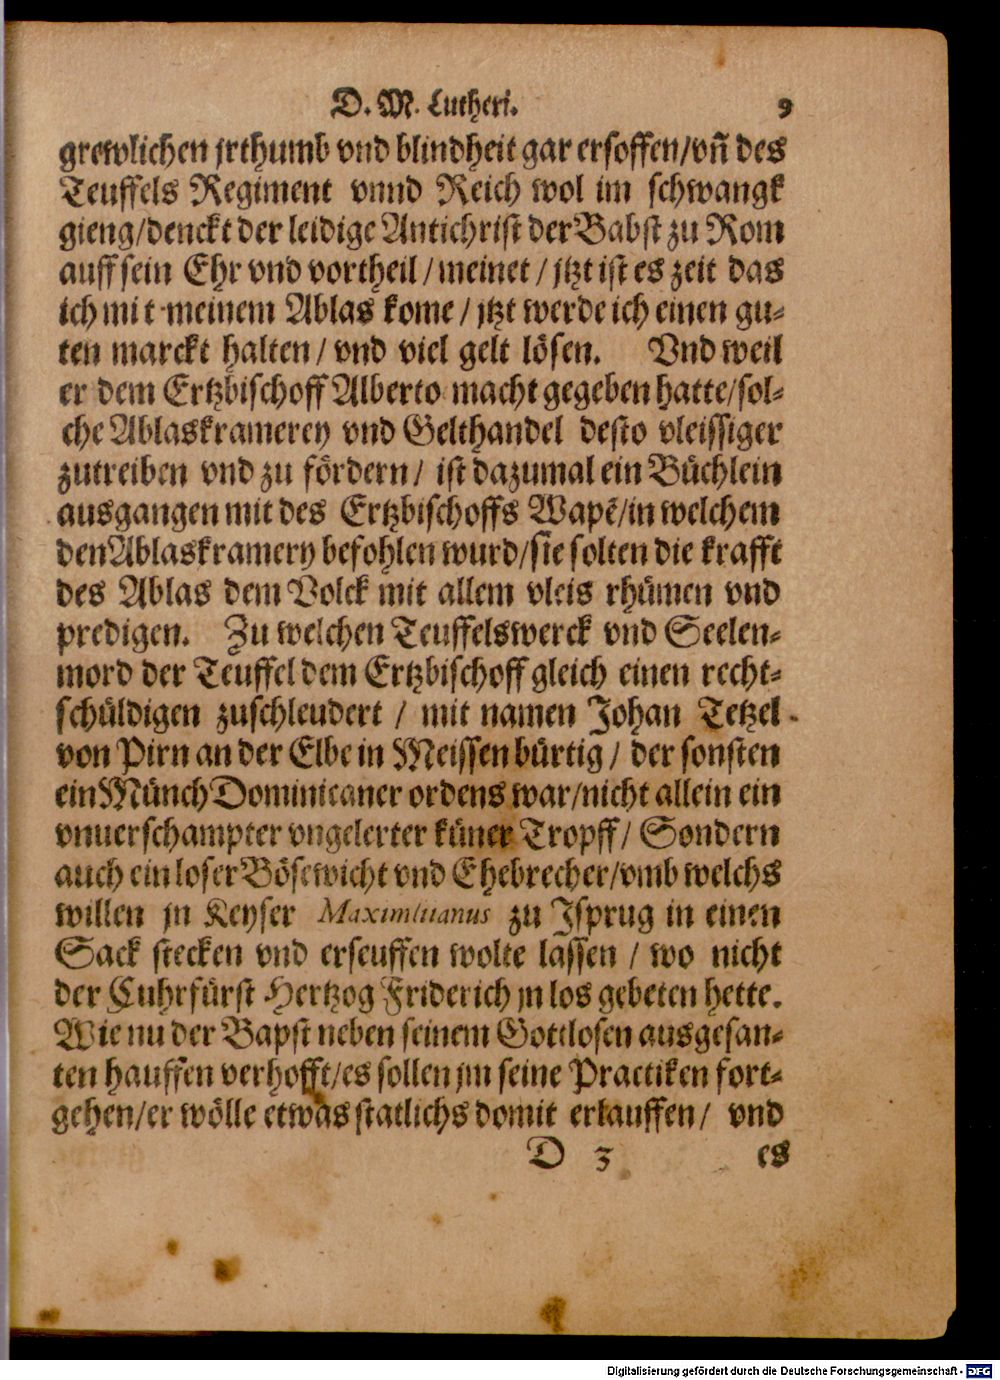 D. M. Lutheri. 9
grewlichen jrthumb vnd blindheit gar ersoffen/vñ des
Teuffels Regiment vnnd Reich wol im schwangk
gieng/denckt der leidige Antichrist der Babst zu Rom
auff sein Ehr vnd vortheil/meinet/jtzt ist es zeit das
ich mit meinem Ablas kome/jtzt werde ich einen gu-
ten marckt halten/vnd viel gelt lösen. Vnd weil
er dem Ertzbischoff Alberto macht gegeben hatte/sol-
che Ablaskramerey vnd Gelthandel desto vleissiger
zutreiben vnd zu fördern/ist dazumal ein Büchlein
ausgangen mit des Ertzbischoffs Wapē/in welchem
den Ablaskramery befohlen wurd/sie solten die krafft
des Ablas dem Volck mit allem vleis rhümen vnd
predigen. Zu welchen Teuffelswerck vnd Seelen-
mord der Teuffel dem Ertzbischoff gleich einen recht-
schüldigen zuschleudert/mit namen Johan Tetzel
von Pirn an der Elbe in Meissen bürtig/der sonsten
ein Münch Dominicaner ordens war/nicht allein ein
vnuerschampter vngelerter küner Tropff/Sondern
auch ein loser Bösewicht vnd Ehebrecher/vmb welchs
willen jn Keyser Maximilianus zu Jsprug in einen
Sack stecken vnd erseuffen wolte lassen/wo nicht
der Cuhrfürst Hertzog Friderich jn los gebeten hette.
Wie nu der Bapst neben seinem Gottlosen ausgesan-
ten hauffen verhofft/es sollen jm seine Practiken fort-
gehen/er wölle etwas statlichs domit erkauffen/vnd
D 3 es
Digitalisierung gefördert durch die Deutsche Forschungsgemeinschaft - DFG